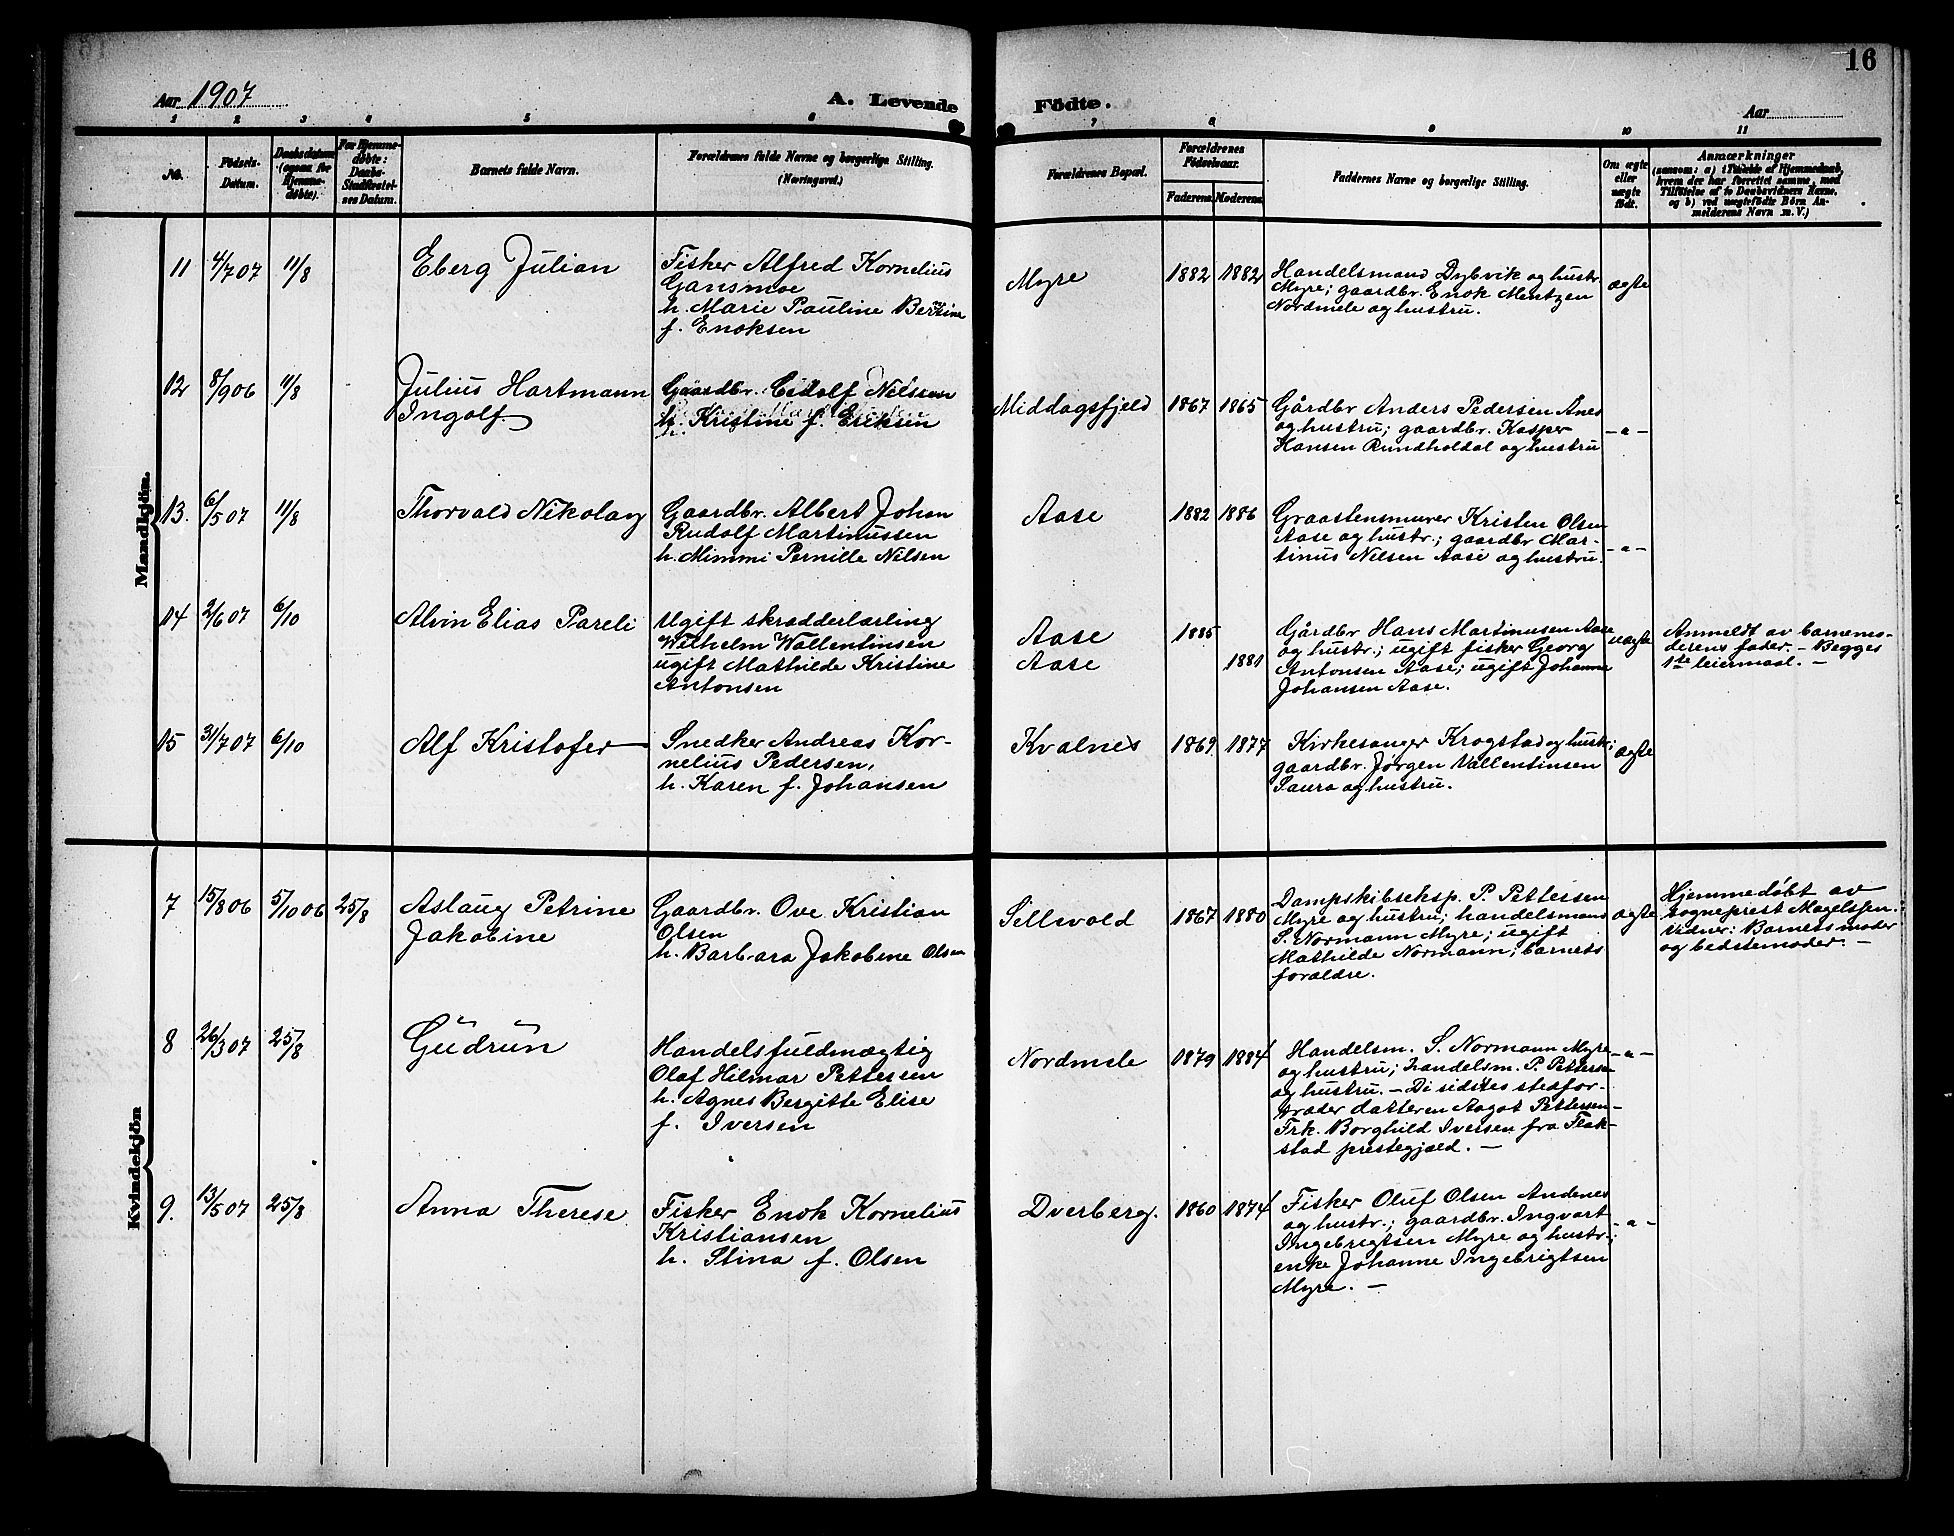 16
Aar 1907
A. Levende Födte.
Aar
1 2 3 4 5 6 7 8 9 10 11
No.
Födsels-
Datum.
Daabsdatum
(ogsaa for
Hjemme-
döbte).
For Hjemme-
döbte:
Daabs-
Stadfæstel-
ses Datum.
Barnets fulde Navn.
Forældrenes fulde Navne og borgerlige Stilling.
(Næringsvei.)
Forældrenes Bopæl.
Forældrenes
Födselsaar.
Faderens. Moderens.
Faddernes Navne og borgerlige Stilling.
Om ægte
eller
uægte
födt.
Anmærkninger
(saasom: a) i Tilfælde af Hjemmedaab,
hvem der har forrettet samme, med
Tilföielse af to Daabsvidners Navne,
og b) ved uægtefödte Börn An-
melderens Navn m. V.)
Mandkjön.
11 4/7 07 11/8 Eberg Julian
Fisker Alfred Kornelius
Gansmoe
h. Marie Pauline Bertine
f. Enoksen
Myre 1882 1882
Handelsmand Dybvik og hustr.
Myre; gaardbr. Enok Mentzen
Nordmele og hustru.
ægte
12 8/9 06 11/8 Julius Hartmann
Ingolf.
Gaardbr. Edolf Nilssen
h. Kristine f. Eriksen
Middagsfjeld 1867 1865
Gårdbr Anders Pedersen Anes
og hustru; gaardbr. Kasper
Hansen Rundholdal og hustru
-"-
13. 6/5 07 11/8 Thorvald Nikolay
Gaardbr. Albert Johan
Rudolf Martinussen
h. Mimmi Pernille Nilsen
Aase 1882 1886
Graastensmurer Kristen Olsen
Aase og hustr.; gaardbr Mar-
tinus Nilsen Aase og hustru.
-"-
14 2/6 07 6/10 Alvin Elias Pareli
Ugift skrædderlærling
Wilhelm Wallentinsen
ugift Mathilde Kristine
Antonsen
Aase 1885
Aase 1881
Gårdbr Hans Martinusen Aase
og hustr.; ugift fisker Georg
Antonsen Aase; ugift Johanne
Johansen Aase.
uægte
Anmeldt av barnemo-
derens fader. - Begges
1ste leiermaal. -
15 31/7 07 6/10 Alf Kristofer
Snedker Andreas Kor-
nelius Pedersen,
h. Karen f. Johansen
Kvalnes 1869 1877
Kirkesanger Krogstad og hustr;
gaardbr. Jörgen Vallentinsen
Saura og hustru.
ægte
Kvindekjön
7 15/8 06 5/10 06 25/8 Aslaug Petrine
Jakobine
Gaardbr. Ove Kristian
Olsen
h. Barbara Jakobine Olsen
Sellevold 1867 1880
Dampskibseksp. P. Pettersen
Myre og hustru; handelsmand
S. Normann Myre; ugift
Mathilde Normann; barnets
forældre.
ægte
Hjemmedøbt av
sogneprest Magelssen.
Vidner: Barnets moder
og bedstemoder. -
8 26/3 07 25/8 Gudrun
Handelsfuldmægtig
Olaf Hilmar Pettersen
h. Agnes Bergitte Elise
f. Iversen
Nordmele 1879 1884
Handelsm. S. Normann Myre
og hustru; handelsm. P. Pettersen
og hustru. - De sidstes stedfor-
træder datteren Aagot Pettersen-
Frk. Borghild Iversen fra Flak-
stad prestegjæld. -
-"-
9. 13/5 07 25/8 Anna Therese
Fisker Enok Kornelius
Kristiansen
h. Stina f. Olsen
Dverberg. 1860 1874
Fisker Oluf Olsen Andenes
og hustr.; gaardbr. Ingvart
Ingebrigtsen Myre og hustr.;
enke Johanne Ingebrigtsen
Myre. -
-"-